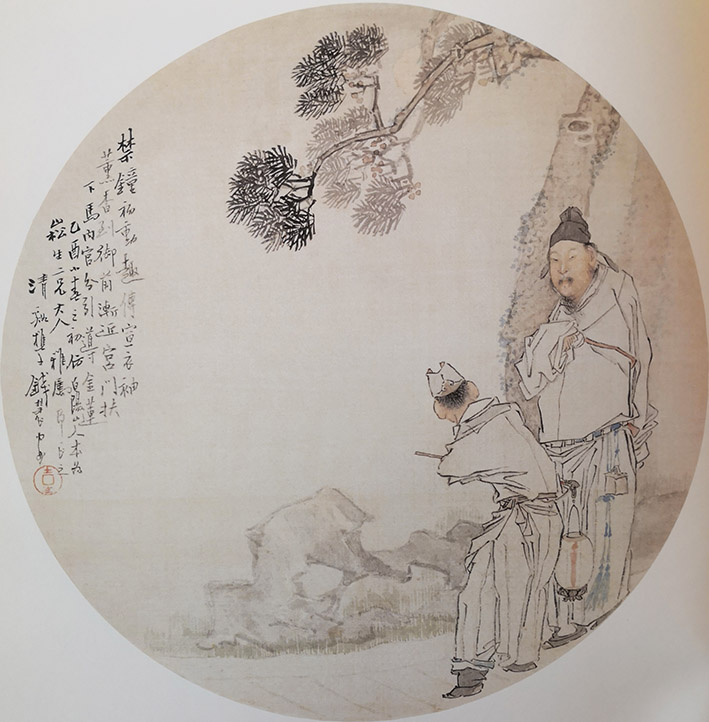 禁鐘初動趣傳宣衣袖
薰香到御前漸近宮門扶
下馬內官分引導金蓮
乙酉小春之初仿白陽山人本為
崧生二兄大人雅屬即正之
清谿樵子錢慧安